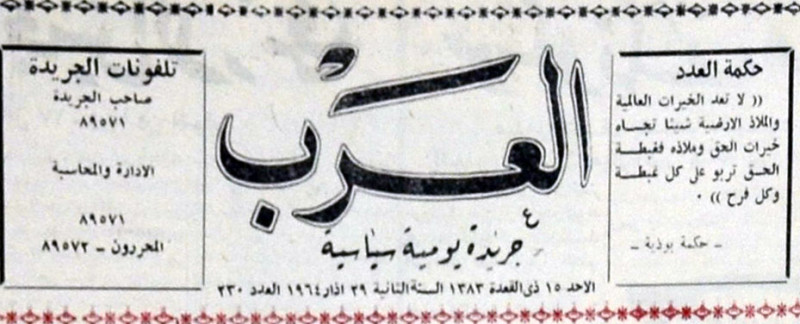 حكمة العدد
(( لا تعد الخيرات العالمية
والملاذ الارضية شيئا تجاه
خيرات الحق وملاذه فغبطة
الحق تربو على كل غبطة
وكل فرح )) .
ـ حكمة بوذية ـ
العرب
جريدة يومية سياسية
الاحد ١٥ ذي القعدة ١٣٨٣ السنة الثانية ٢٩ اذار ١٩٦٤ العدد ٢٣٠
تلفونات الجريدة
صاحب الجريدة
٨٩٥٧١
الادارة والمحاسبة
٨٩٥٧١
المحررون ـ ٨٩٥٧٢